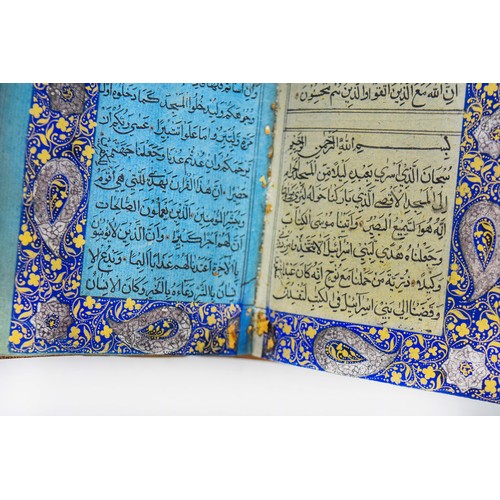 ان الله مع الذين اتقوا والذين هم محسنون
بسم الله الرحمن الرحيم
سبحان الذي اسرى بعبده ليلا من المسجد
الى المسجد الاقصى الذي باركنا حوله لنريه
انه هو السميع البصير واتينا موسى الكتاب
وجعلناه هدى لبنى اسرائيل الا تتخذوا
وكيلا ذرية من حملنا مع نوح انه كان عبدا
وقضينا الى بنى اسرائيل فى الكتاب لتفسدن
وان اساتم فلها
وجوهكم وليدخلوا المسجد كما دخلوه اول
مرة وليتبروا ما علوا تتبيرا عسى ربكم ان
يرحمكم وان عدتم عدنا وجعلنا جهنم
حصيرا ان هذا القران يهدى للتى هى اقوم
ويبشر المؤمنين الذين يعملون الصالحات
ان لهم اجرا كبيرا وان الذين لا يؤمنون
بالاخرة اعتدنا لهم عذابا اليما ويدع الا
نسان بالشر دعاءه بالخير وكان الانسان